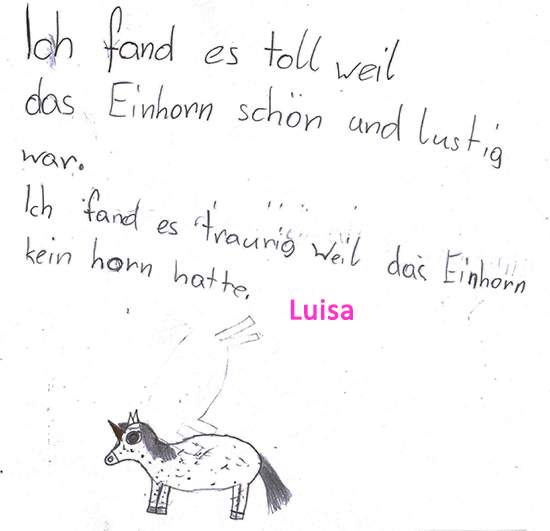 Ich fand es toll weil
das Einhorn schön und lustig
war.
Ich fand es traurig weil das Einhorn
kein horn hatte.
Luisa